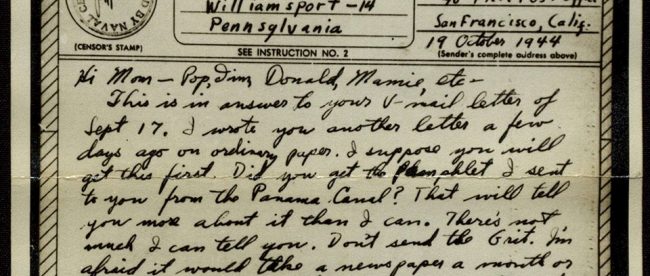 D BY NAVAL
(CENSOR'S STAMP)
Williamsport - 14
Pennsylvania
SEE INSTRUCTION NO. 2
San Francisco, Calif.
19 October 1944
(Sender's complete address above)
Hi Mom - Pop, Jim, Donald, Mamie, etc -
This is in answer to your V-mail letter of
Sept 17. I wrote you another letter a few
days ago on ordinary paper. I suppose you will
get this first. Did you get the Pamphlet I sent
to you from the Panama Canal? That will tell
you more about it than I can. There's not
much I can tell you. Don't send the Grit. I'm
afraid it would take a newspaper a month or